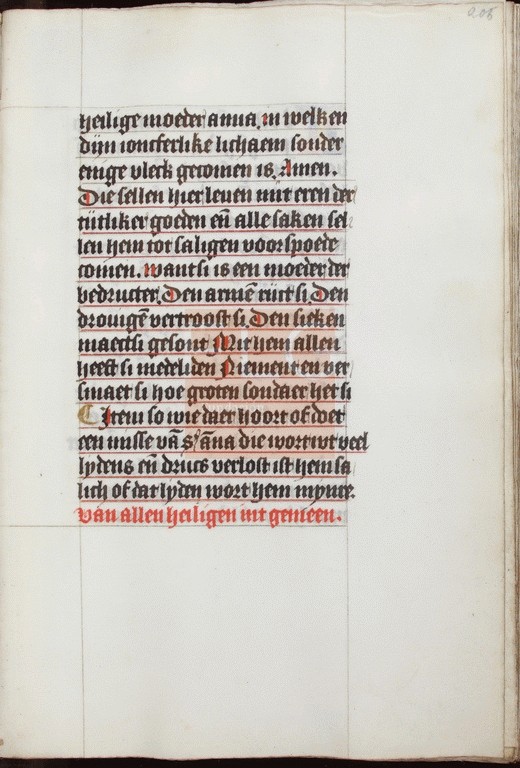 heilige moeder anna. in welken
dijn ioncferlike lichaem sonder
enige vleck gecomen is. Amen.
Die sellen hier leuen mit eren der
tijtliker goeden en̄ alle saken sel
len hem tot saligen voorspoede
comen. want si is een moeder der
bedructer. Den armē rijct si. Den
drouigē vertroost si. Den sieken
maect si gesont Mit hem allen
heeft si medeliden Niement en ver
smaet si hoe groten sondaer het si
Item so wie daer hoort of doet
een misse vā s anna die wort wt veel
lydens en̄ drucs verlost ist hem sa
lich of dat lyden wort hem mynre.
van allen heiligen int gemeen.